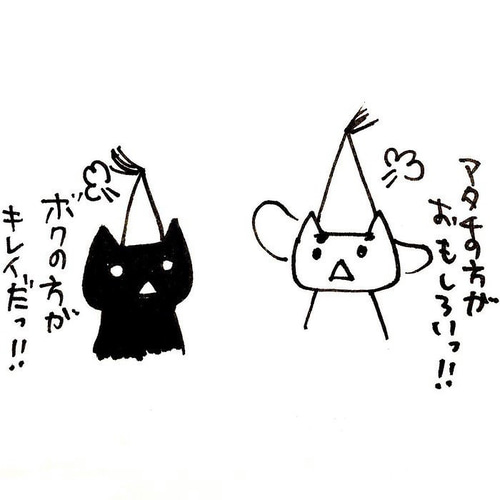 アタチの方が
おもしろいっ!!
ボクの方が
キレイだっ!!